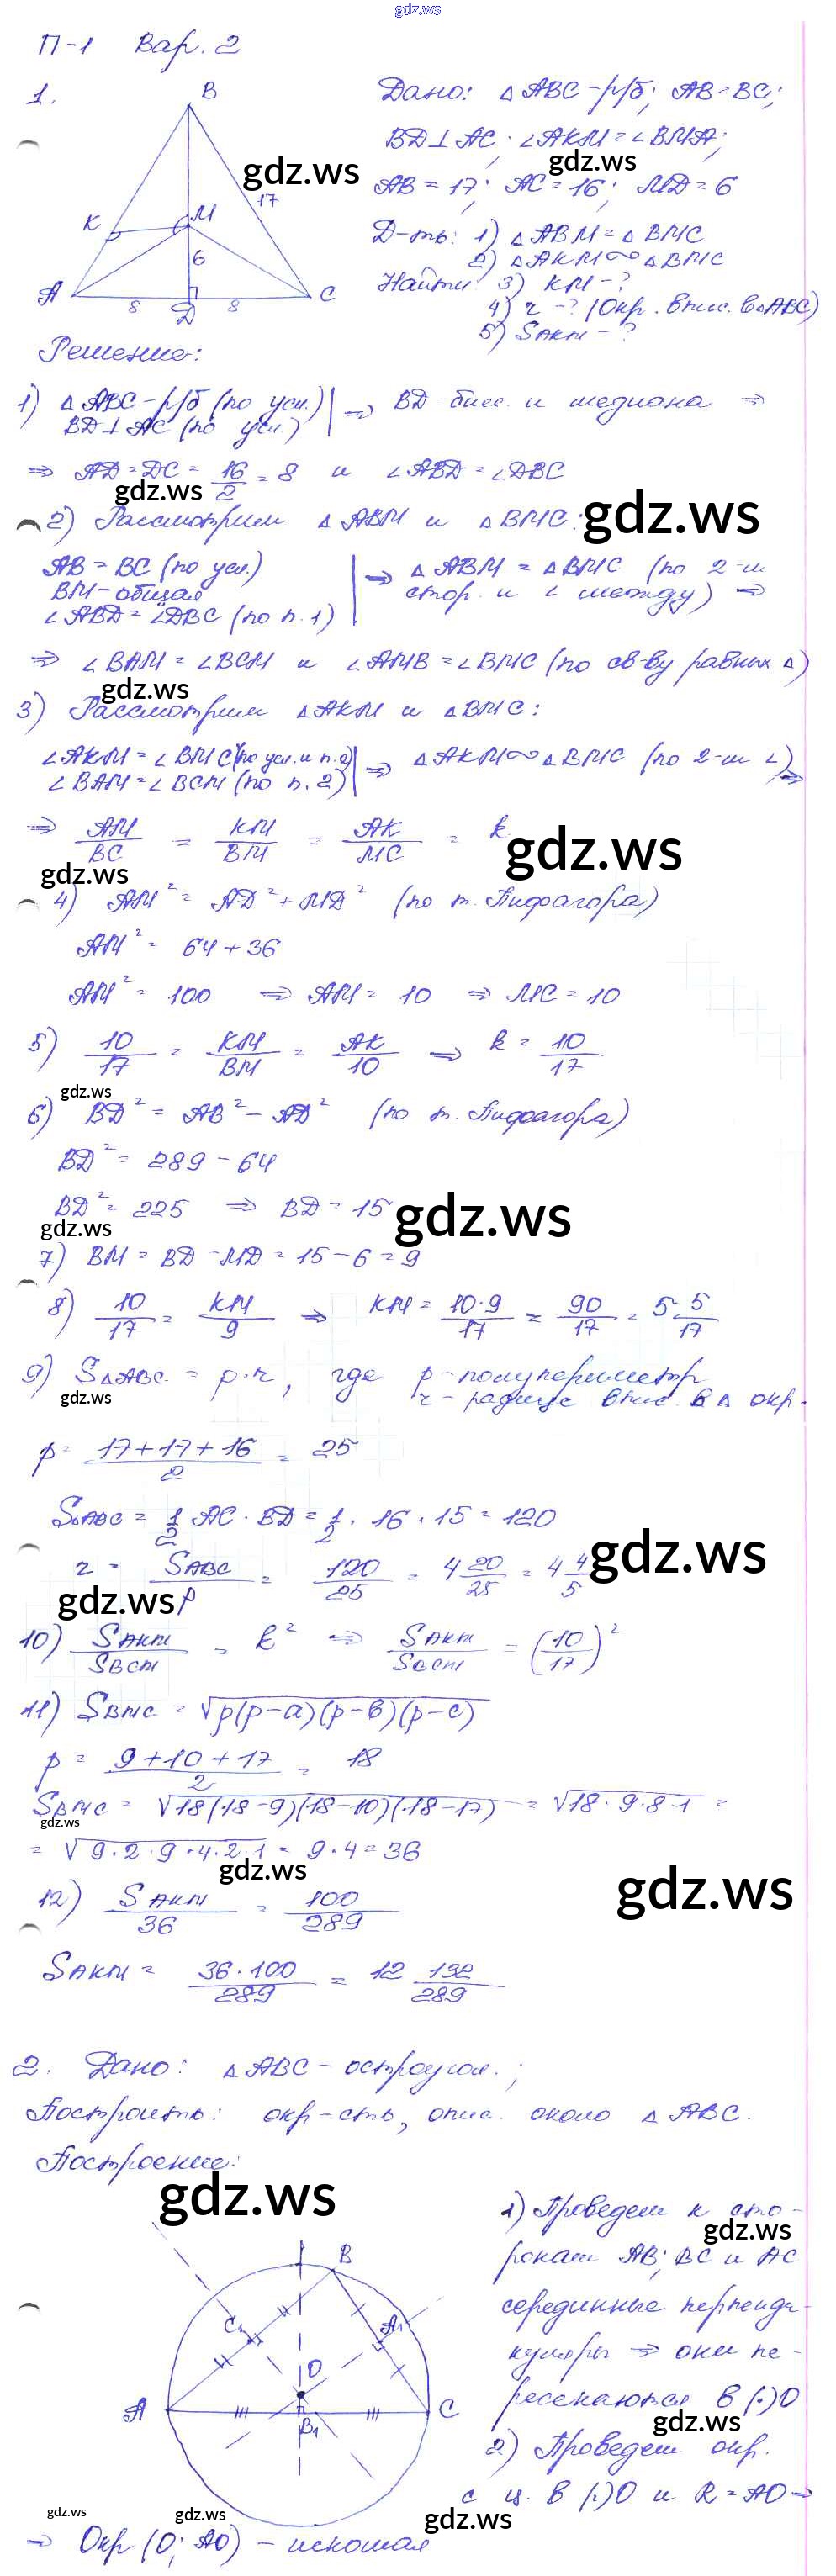 gdz.ws
П-1 Вар. 2
1.
B
K
M
17
6
A
8
D
8
C
Дано: △ABC-р/б; AB=BC;
gdz.ws
BD⊥AC; ∠AKM=∠BMA;
gdz.ws
AB=17; AC=16; MD=6
Д-ть: 1) △ABM=△BMC
2) △AKM∾△BMC
Найти 3) KM-?
4) r-? (Окр. впис. в △ABC)
5) SAKM-?
Решение:
1) △ABC-р/б (по усл.) | ⇒ BD-бисс. и медиана ⇒
BD⊥AC (по усл)
⇒ AD=DC=16/2=8 и ∠ABD=∠DBC
gdz.ws
gdz.ws
2) Рассмотрим △ABM и △BMC:
AB=BC (по усл.) | ⇒ △ABM=△BMC (по 2-м
BM-общая стор. и ∠ между) ⇒
∠ABD=∠DBC (по п.1)
⇒ ∠BAM=∠BCM и ∠AMB=∠BMC (по св-ву равных △)
gdz.ws
3) Рассмотрим △AKM и △BMC:
∠AKM=∠BMC (по усл. и п.2) | ⇒ △AKM∾△BMC (по 2-м ∠) ⇒
∠BAM=∠BCM (по п.2)
⇒ AM/BC = KM/BM = AK/MC = k
gdz.ws
gdz.ws
4) AM²=AD²+MD² (по т. Пифагора)
AM²=64+36
AM²=100 ⇒ AM=10 ⇒ MC=10
5) 10/17 = KM/BM = AK/10 ⇒ k=10/17
gdz.ws
6) BD²=AB²-AD² (по т. Пифагора)
BD²=289-64
BD²=225 ⇒ BD=15
gdz.ws
gdz.ws
7) BM=BD-MD=15-6=9
8) 10/17 = KM/9 ⇒ KM=10·9/17=90/17=5 5/17
9) S△ABC=p·r, где p-полупериметр
gdz.ws
r-радиус впис. в △ окр.
p=17+17+16/2=25
S△ABC=1/2 AC·BD=1/2·16·15=120
gdz.ws
r=SABC/p=120/25=4 20/25=4 4/5
gdz.ws
10) SAKM/SBCM=k² ⇒ SAKM/SBCM=(10/17)²
11) SBMC=√p(p-a)(p-b)(p-c)
p=9+10+17/2=18
SBMC=√18(18-9)(18-10)(18-17)=√18·9·8·1=
gdz.ws
=√9·2·9·4·2·1=9·4=36
gdz.ws
gdz.ws
12) SAKM/36=100/289
SAKM=36·100/289=12 132/289
2. Дано: △ABC-остроугол.;
Построить: окр-сть, опис. около △ABC.
Построение:
gdz.ws
B
C₁
A₁
O
A
B₁
C
1) Проведем к сто-
gdz.ws
ронам AB; BC и AC
серединные перпенди-
куляры ⇒ они пе-
ресекаются в (·)O
gdz.ws
2) Проведем окр.
с ц. в (·)O и R=AO ⇒
gdz.ws
gdz.ws
gdz.ws
⇒ Окр (O; AO) - искомая